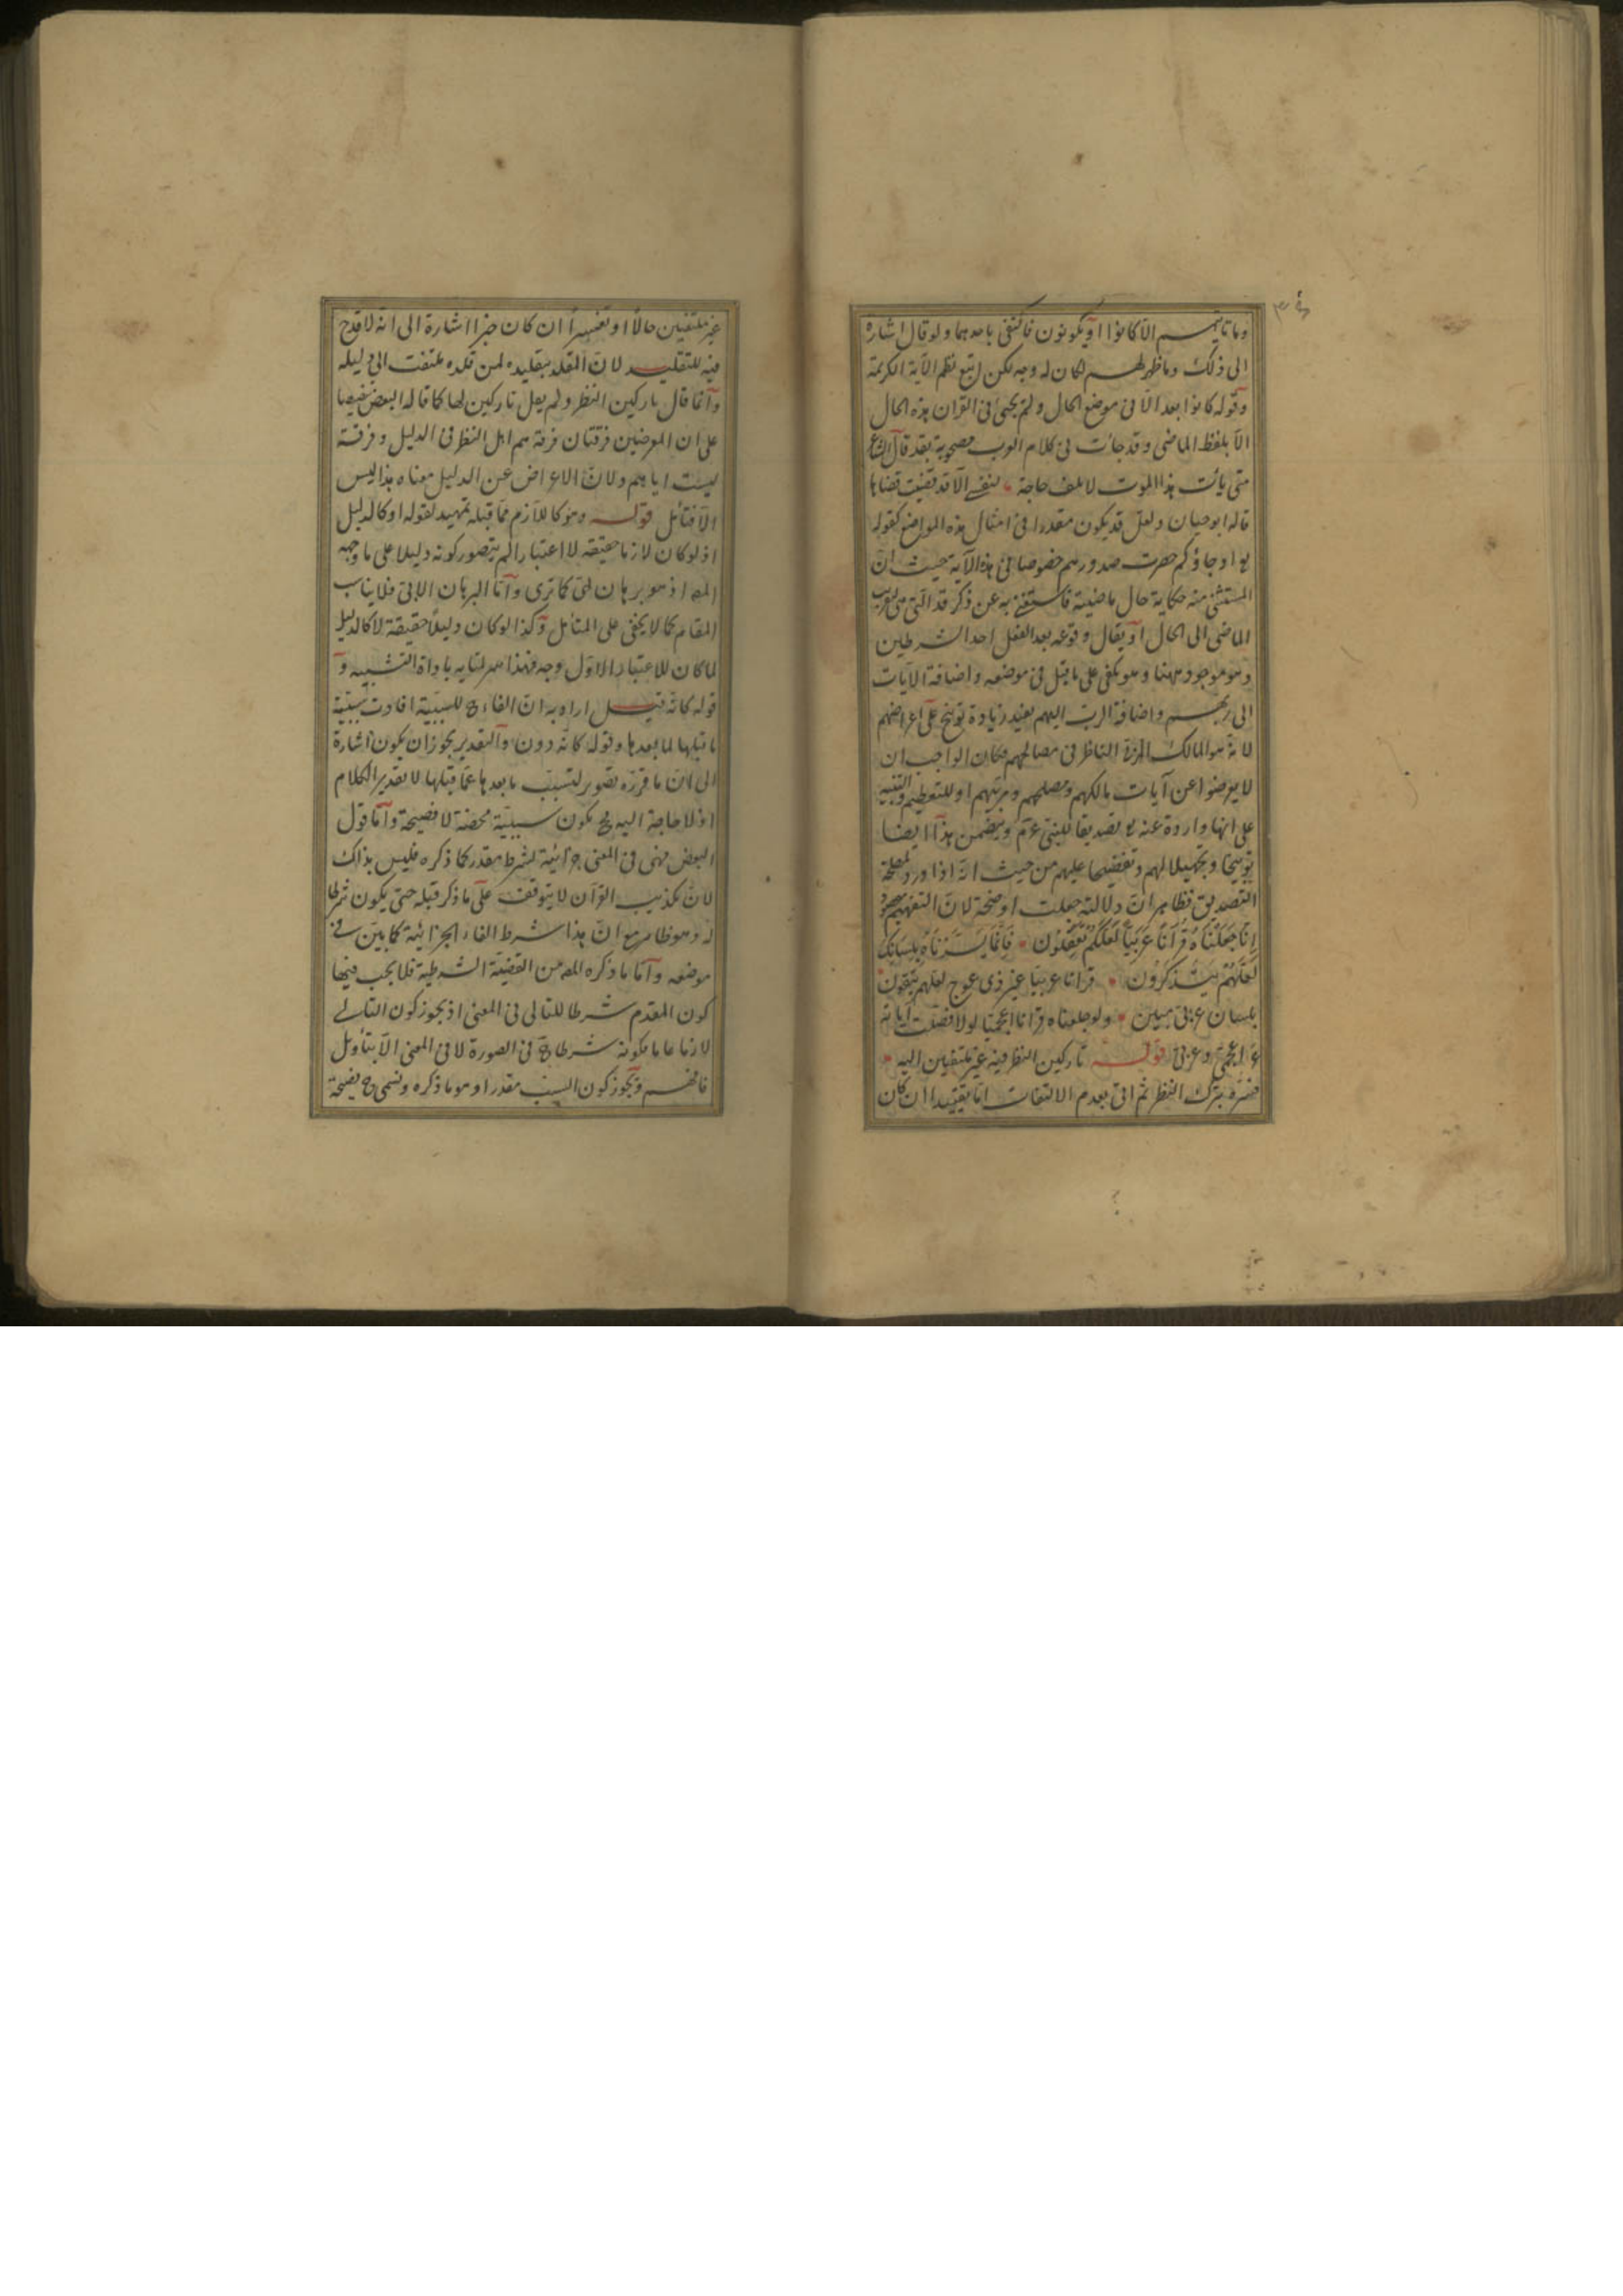 وما تاتيهم الا كانوا او يكونون فاكتفى باحدهما ولو قال اشارة
الى ذلك وما ظهر لهم لكان له وجه لكن اتبع نظم الآية الكريمة
وقوله كانوا بعد الا في موضع الحال ولم يجئ في القرآن هذه الحال
الا بلفظ الماضي وقد جاءت في كلام العرب مصحوبة بقد قال الشاعر
متى يأت هذا الموت لا يلف حاجة لنفسي الا قد قضيت قضاها
قاله ابو حيان ولعل قد يكون مقدرا في امثال هذه المواضع كقوله
تع او جاؤكم حصرت صدورهم خصوصا في هذه الآية حيث ان
المستثنى منه حكاية حال ماضية فاستغنى به عن ذكر قد التي تقرب
الماضي الى الحال او يقال وقوعه بعد الفعل احد الشرطين
وهو موجود ههنا وهو يكفي على ما قيل في موضعه واضافة الآيات
الى ربهم واضافة الرب اليهم يفيد زيادة توبيخ على اعراضهم
لانه هو المالك الناظر في مصالحهم وكان الواجب ان
لا يعرضوا عن آيات مالكهم ومصلحهم ومربيهم او للتعظيم والتنبيه
على انها واردة عنه تع تصديقا للنبي عم ويتضمن هذا ايضا
توبيخا وتجهيلا لهم وتفضيحا عليهم من حيث انه اذا ورد لمصلحة
التصديق فظاهر ان دلالته جعلت اوضحة لان التفهيم مقصود
إنا جعلناه قرآنا عربيا لعلكم تعقلون فإنما يسرناه بلسانك
لعلهم يتذكرون قرانا عربيا غير ذي عوج لعلهم يتقون
بلسان عربي مبين ولو جعلناه قرانا اعجميا لولا فصلت اياته
ءاعجمي وعربي قوله تاركين النظر فيه غير ملتفتين اليه
فسره بترك النظر ثم اتى بعدم الالتفات اما تقييدا ان كان
غير ملتفتين حالا او تفسيرا ان كان خبرا اشارة الى انه لا قدح
فيه للتقليد لان المقلد بتقليده لمن قلده ملتفت الى دليله
وانما قال تاركين النظر ولم يقل تاركين لها كما قاله البعض تنصيصا
على ان المعرضين فرقتان فرقة هم اهل النظر في الدليل وفرقة
ليست اياهم ولان الاعراض عن الدليل معناه هذا ليس
الا فتأمل قوله وهو كاللازم مما قبله تمهيد لقوله او كالدليل
اذ لو كان لازما حقيقة لا اعتبارا لم يتصور كونه دليلا على ما وجهه
المص اذ هو برهان لمي كما ترى واما البرهان الاني فلا يناسب
المقام كما لا يخفى على المتأمل وكذا لو كان دليلا حقيقة لا كالدليل
لما كان للاعتبار الاول وجه فهذا سر اتيانه باداة التشبيه و
قوله كانه قيل اراد به ان الفاء ح للسببية افادت سببية
ما قبلها لما بعدها وقوله كانه دون والتقدير يجوز ان يكون اشارة
الى ان ما قرره تصوير لتسبب ما بعدها عما قبلها لا تقدير الكلام
اذ لا حاجة اليه فح يكون سببية محضة لا فصيحة واما قول
البعض فهي في المعنى جزائية لشرط مقدر كما ذكره فليس بذاك
لان تكذيب القرآن لا يتوقف على ما ذكر قبله حتى يكون شرطا
له وهو ظاهر مع ان هذا شرط الفاء الجزائية كما بين في
موضعه واما ما ذكره المص من القضية الشرطية فلا يجب فيها
كون المقدم شرطا للتالي في المعنى اذ يجوز كون التالي
لازما عاما فكونه شرطا ح في الصورة لا في المعنى الا بتأويل
فافهم ويجوز كون السبب مقدرا وهو ما ذكره وتسمى ح فصيحة